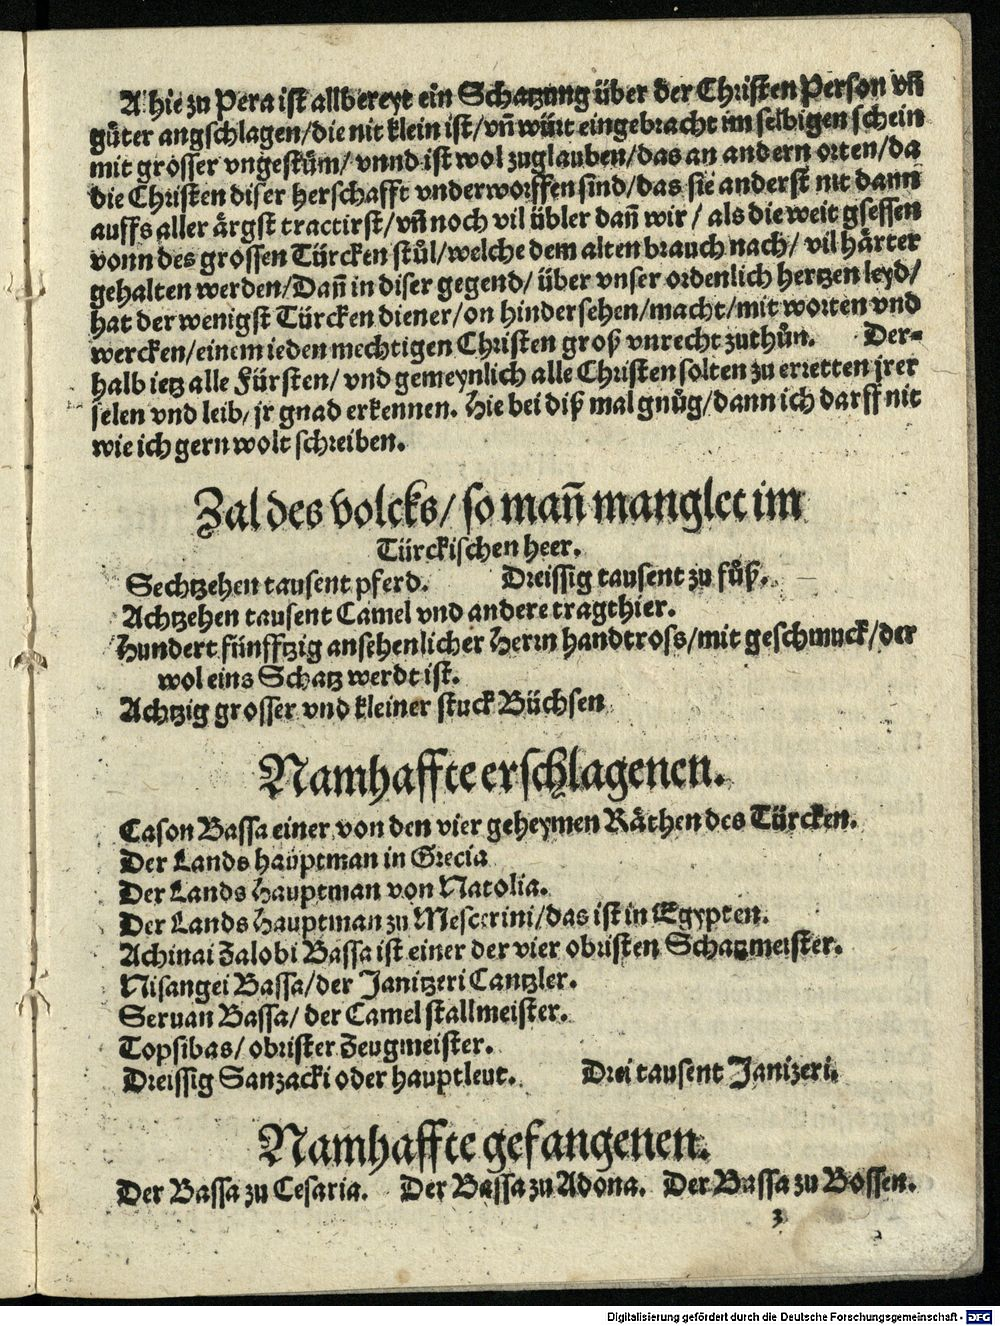 Alhie zu Pera ist allbereyt ein Schatzung über der Christen Person vñ
güter angschlagen/die nit klein ist/vñ würt eingebracht im selbigen schein
mit grosser vngestüm/vnnd ist wol zuglauben/das an andern orten/da
die Christen diser herschafft vnderworffen sind/das sie anderst nit dann
auffs aller ärgst tractirst/vñ noch vil übler dañ wir/als die weit gsessen
vonn des grossen Türcken stůl/welche dem alten brauch nach/vil härter
gehalten werden/Dañ in diser gegend/über vnser ordenlich hertzen leyd/
hat der wenigst Türcken diener/on hindersehen/macht/mit worten vnd
wercken/einem ieden mechtigen Christen groß vnrecht zuthůn. Der-
halb ietz alle Fürsten/vnd gemeynlich alle Christen solten zu erretten jrer
selen vnd leib/jr gnad erkennen. Hie bei diß mal gnůg/dann ich darff nit
wie ich gern wolt schreiben.
Zal des volcks/so mañ manglet im
Türckischen heer.
Sechtzehen tausent pferd. Dreissig tausent zu fůß.
Achtzehen tausent Camel vnd andere tragthier.
Hundert fünfftzig ansehenlicher Herrn handtross/mit geschmuck/der
wol eins Schatz werdt ist.
Achtzig grosser vnd kleiner stuck Büchsen
Namhaffte erschlagenen.
Cason Bassa einer von den vier geheymen Räthen des Türcken.
Der Lands haüptman in Grecia
Der Lands Hauptman von Natolia.
Der Lands Hauptman zu Mescerini/das ist in Egypten.
Achinai Zalobi Bassa ist einer der vier obristen Schatzmeister.
Nisangei Bassa/der Janitzeri Cantzler.
Seruan Bassa/der Camel stallmeister.
Topsibas/obrister Zeugmeister.
Dreissig Sanzacki oder hauptleut. Drei tausent Janizeri.
Namhaffte gefangenen.
Der Bassa zu Cesaria. Der Bassa zu Adona. Der Bassa zu Bossen.
3
Digitalisierung gefördert durch die Deutsche Forschungsgemeinschaft - DFG